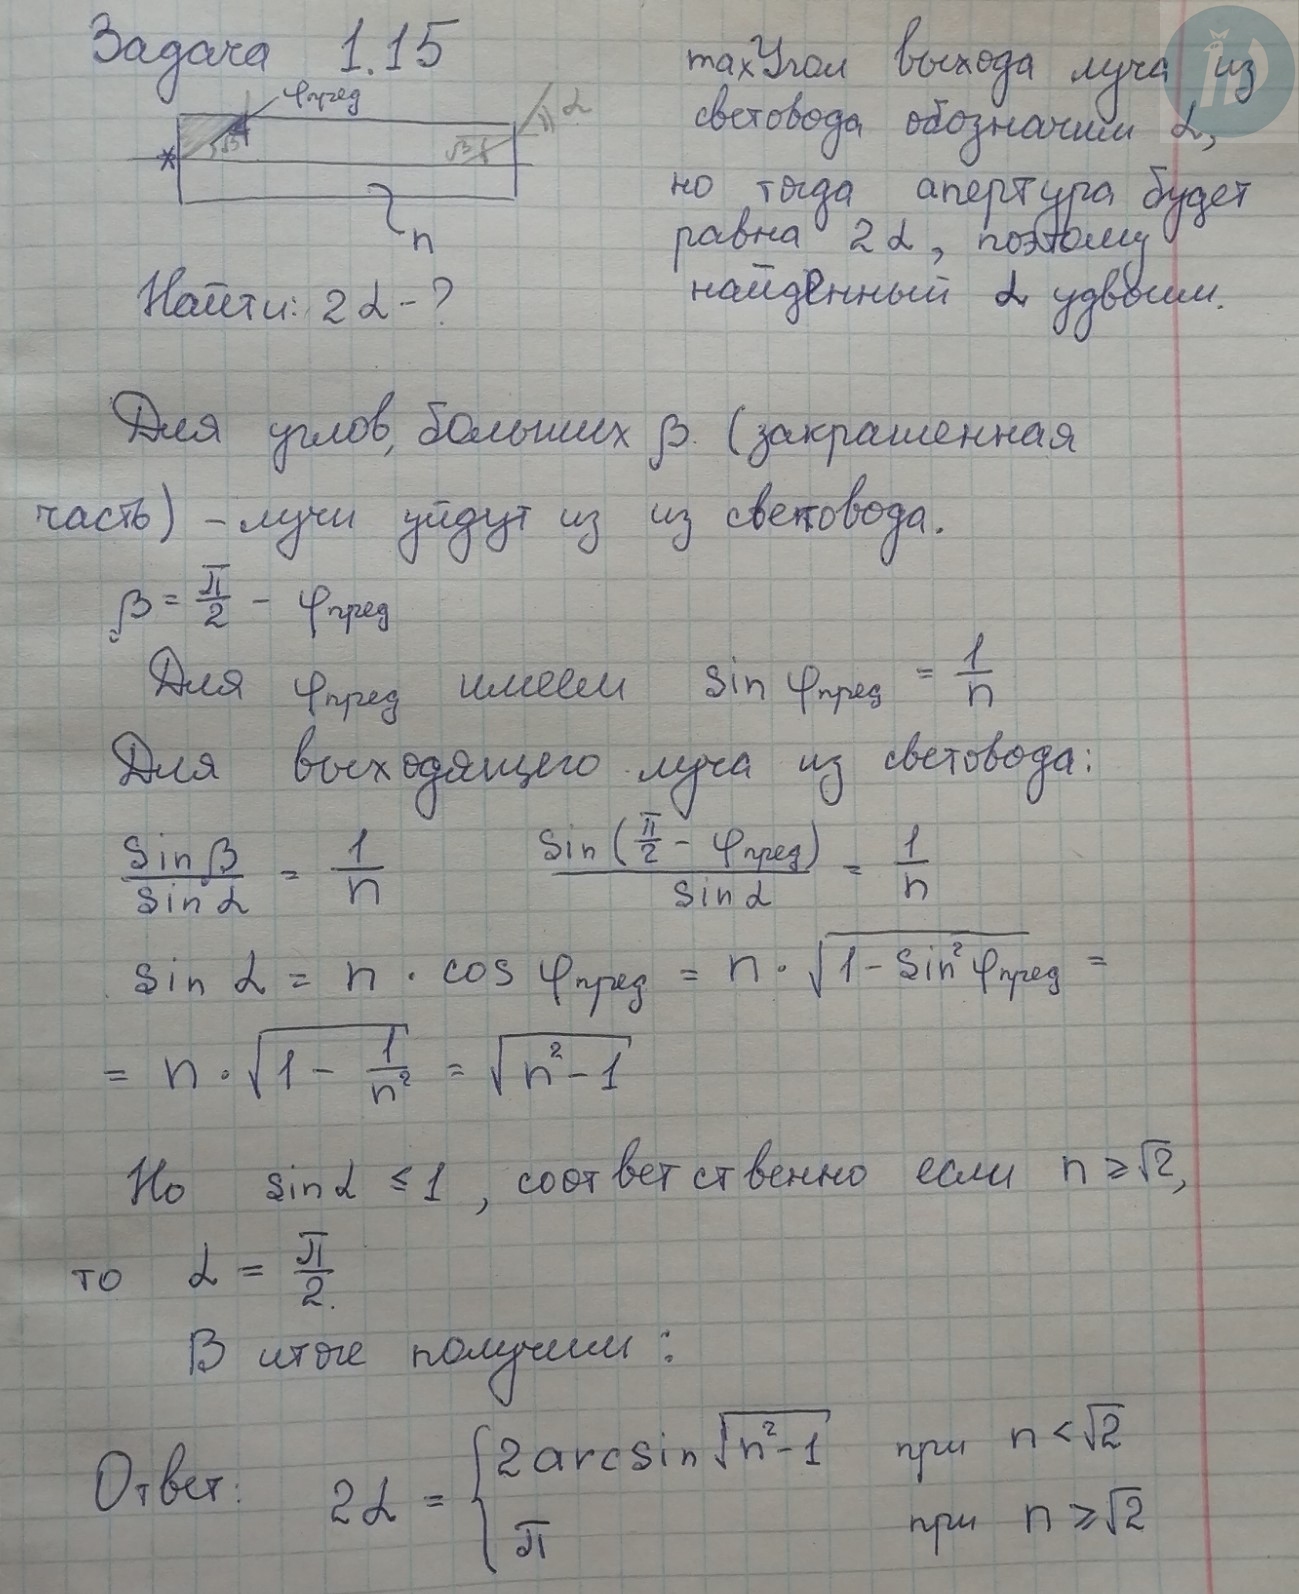 Задача 1.15
φпред
α
β
β
n
Найти: 2α - ?
max Угол выхода луча из
световода обозначим α,
но тогда апертура будет
равна 2α, поэтому
найденный α удвоим.
Для углов, больших β (закрашенная
часть) - лучи уйдут из из световода.
β = π/2 - φпред
Для φпред имеем sin φпред = 1/n
Для выходящего луча из световода:
sin β / sin α = 1/n sin(π/2 - φпред) / sin α = 1/n
sin α = n · cos φпред = n · √(1 - sin² φпред) =
= n · √(1 - 1/n²) = √(n² - 1)
Но sin α ≤ 1, соответственно если n ≥ √2,
то α = π/2.
В итоге получим:
Ответ: 2α = { 2 arcsin √(n² - 1) при n < √2
π при n ≥ √2